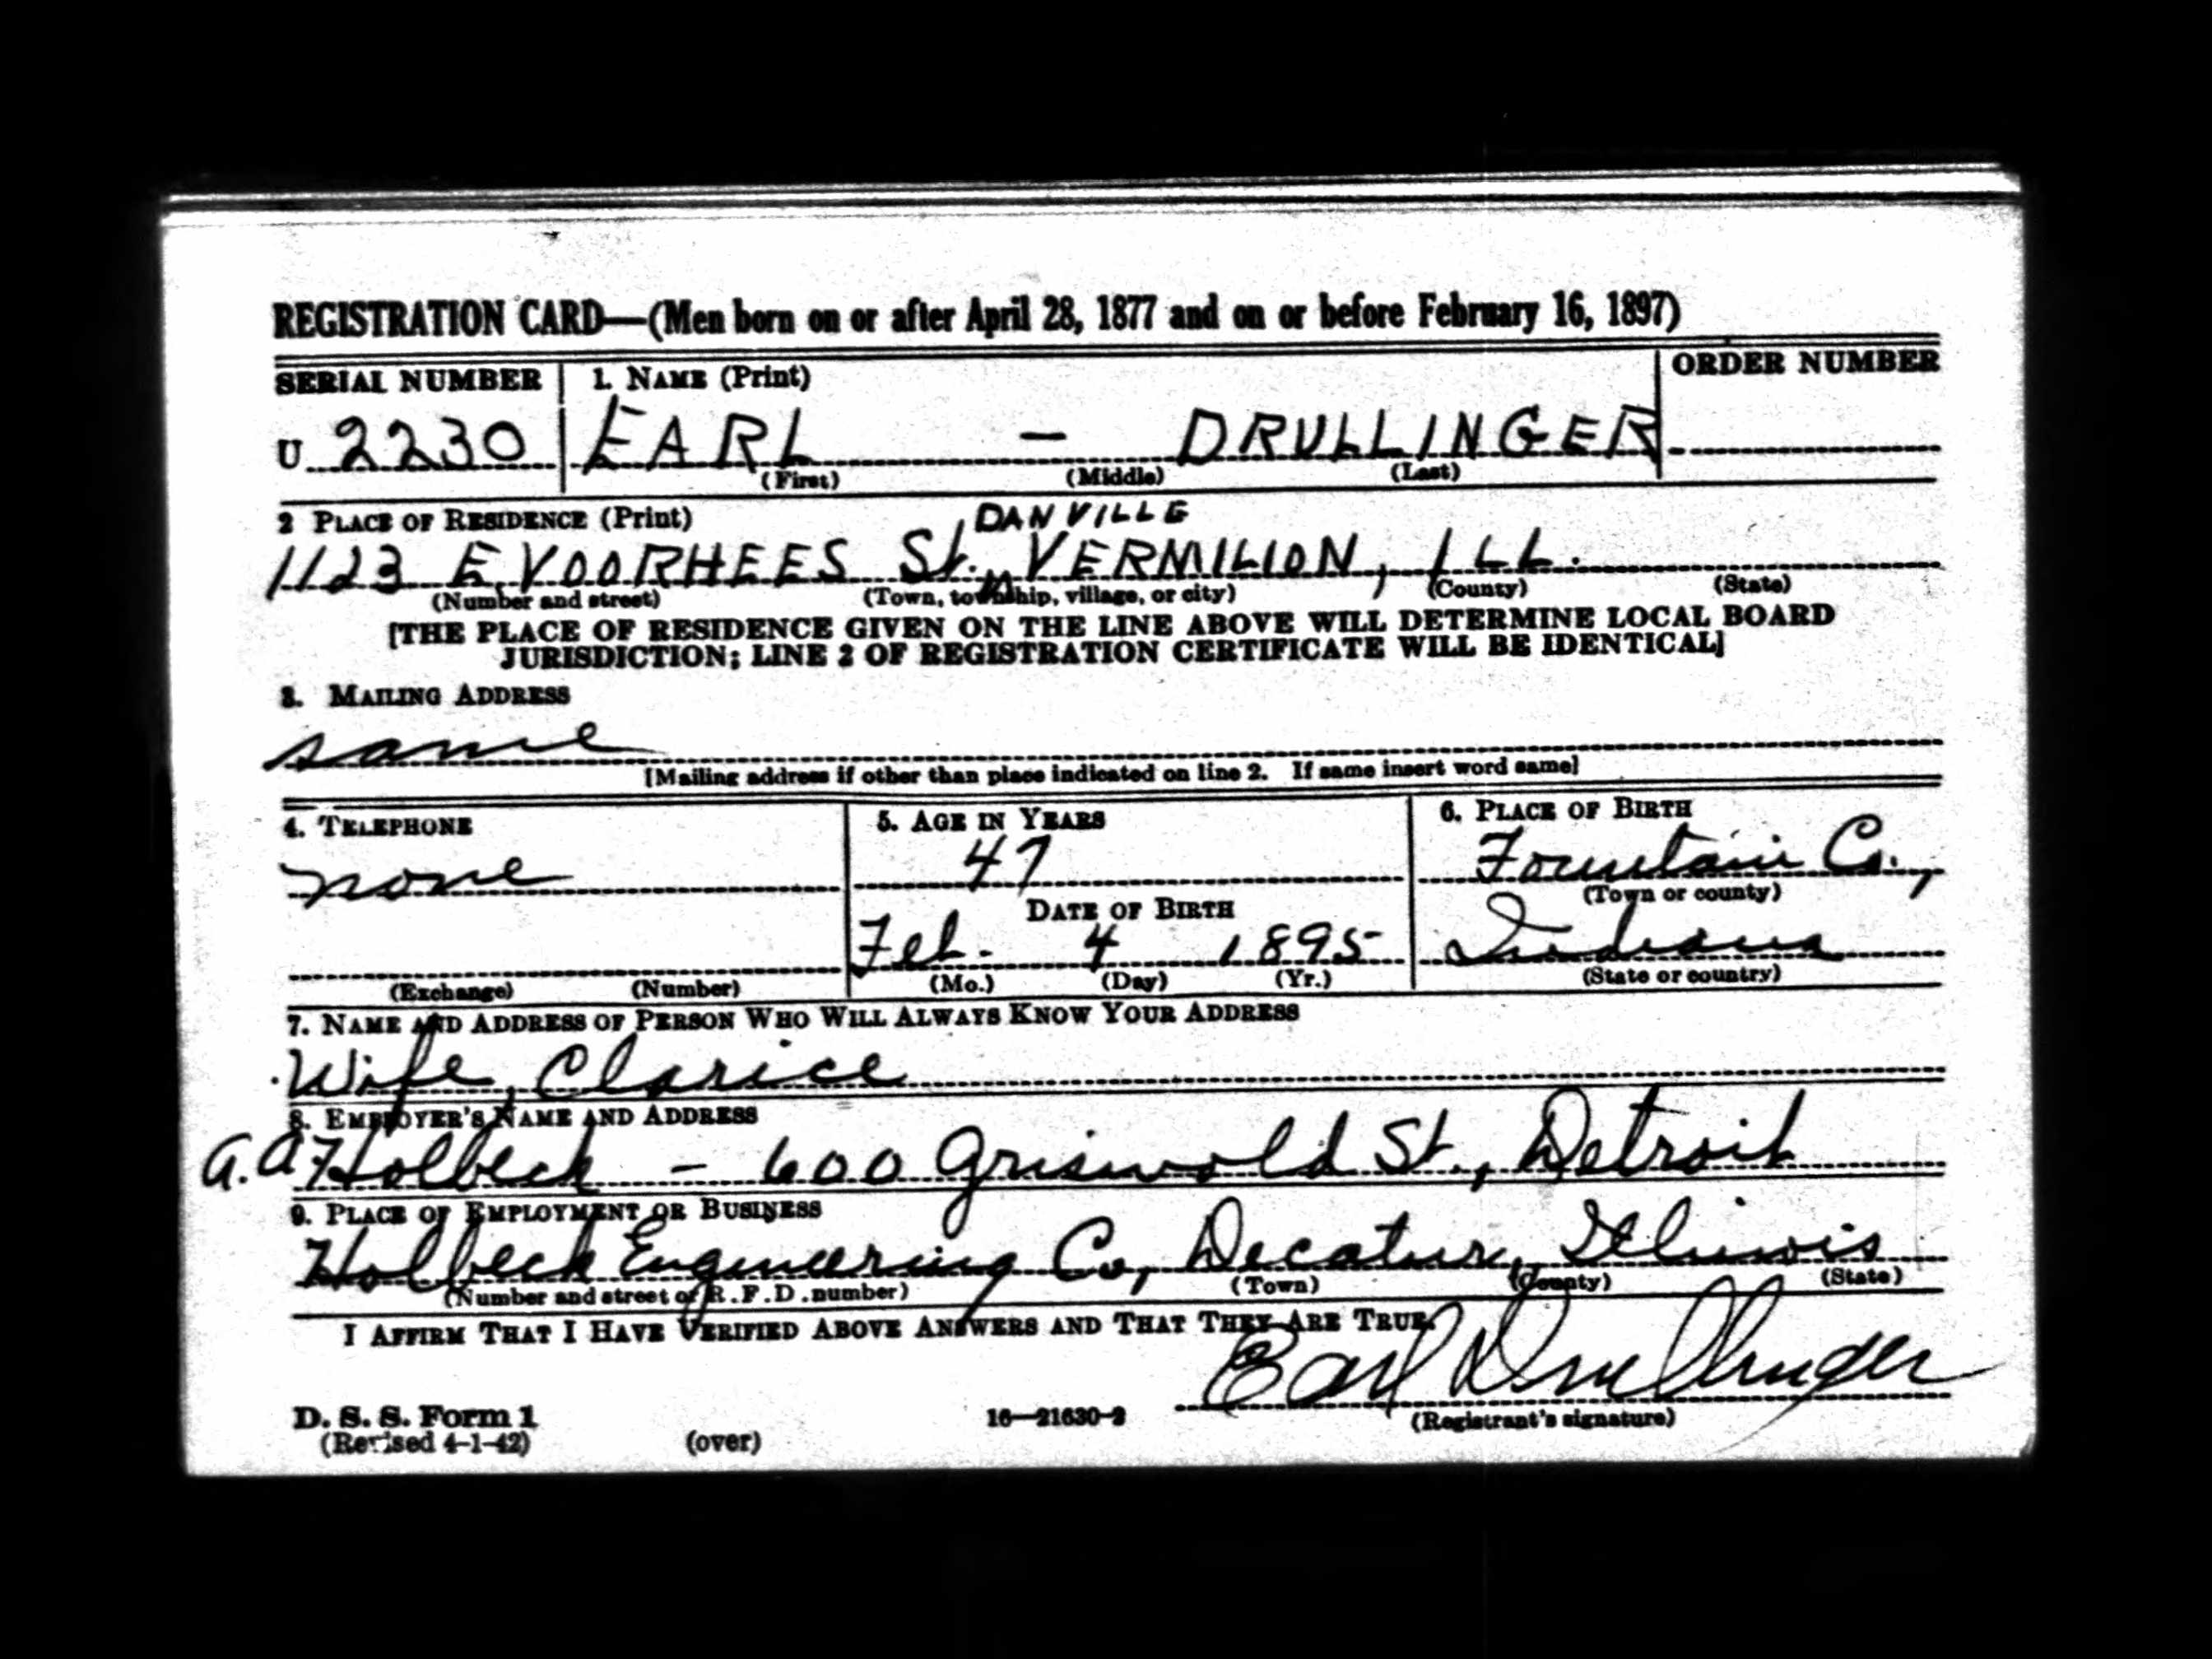 REGISTRATION CARD—(Men born on or after April 28, 1877 and on or before February 16, 1897)
SERIAL NUMBER 1. NAME (Print) ORDER NUMBER
U 2230 EARL – DRULLINGER
(First) (Middle) (Last)
2 PLACE OF RESIDENCE (Print) DANVILLE
1123 E. VOORHEES St., VERMILION, ILL.
(Number and street) (Town, township, village, or city) (County) (State)
[THE PLACE OF RESIDENCE GIVEN ON THE LINE ABOVE WILL DETERMINE LOCAL BOARD
JURISDICTION; LINE 2 OF REGISTRATION CERTIFICATE WILL BE IDENTICAL]
3. MAILING ADDRESS
same
[Mailing address if other than place indicated on line 2. If same insert word same]
4. TELEPHONE 5. AGE IN YEARS 6. PLACE OF BIRTH
none 47 Fountain Co.,
DATE OF BIRTH (Town or county)
Feb. 4 1895 Indiana
(Exchange) (Number) (Mo.) (Day) (Yr.) (State or country)
7. NAME AND ADDRESS OF PERSON WHO WILL ALWAYS KNOW YOUR ADDRESS
Wife, Clarice
8. EMPLOYER'S NAME AND ADDRESS
a.a Holbeck – 600 Griswold St., Detroit
9. PLACE OF EMPLOYMENT OR BUSINESS
Holbeck Engineering Co, Decatur, Illinois
(Number and street or R. F. D. number) (Town) (County) (State)
I AFFIRM THAT I HAVE VERIFIED ABOVE ANSWERS AND THAT THEY ARE TRUE.
Earl Drullinger
D. S. S. Form 1 16—21630-2 (Registrant's signature)
(Revised 4-1-42) (over)